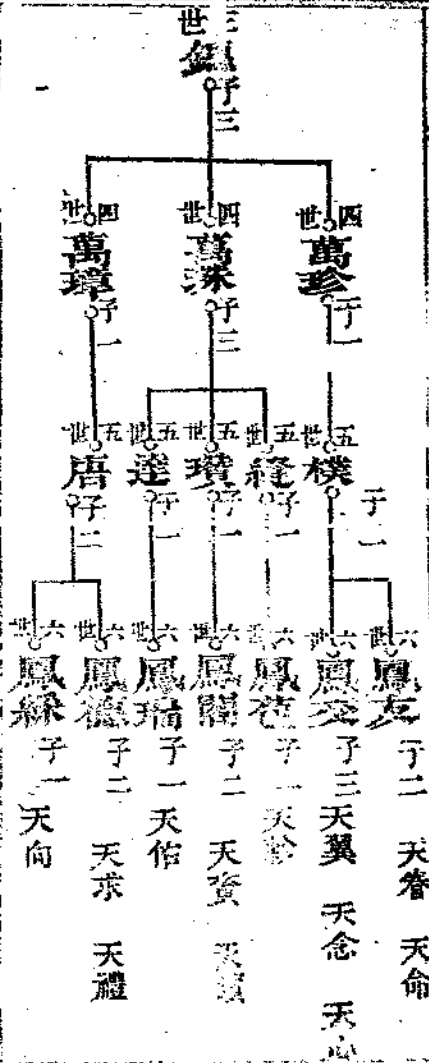 三世 子三
四世 萬珍 子一
四世 萬珠 子三
四世 萬璋 子一
五世 樸 子
五世 縫 子一
五世 瓚 子一
五世 達 子一
五世 唐 子二
六世 鳳友 子二 天眷 天命
六世 鳳交 子三 天翼 天念 天心
六世 鳳苞 子一
六世 鳳 子二 天資
六世 鳳瑞 子一 天佑
六世 鳳德 子二 天求 天禮
六世 鳳綵 子一 天向